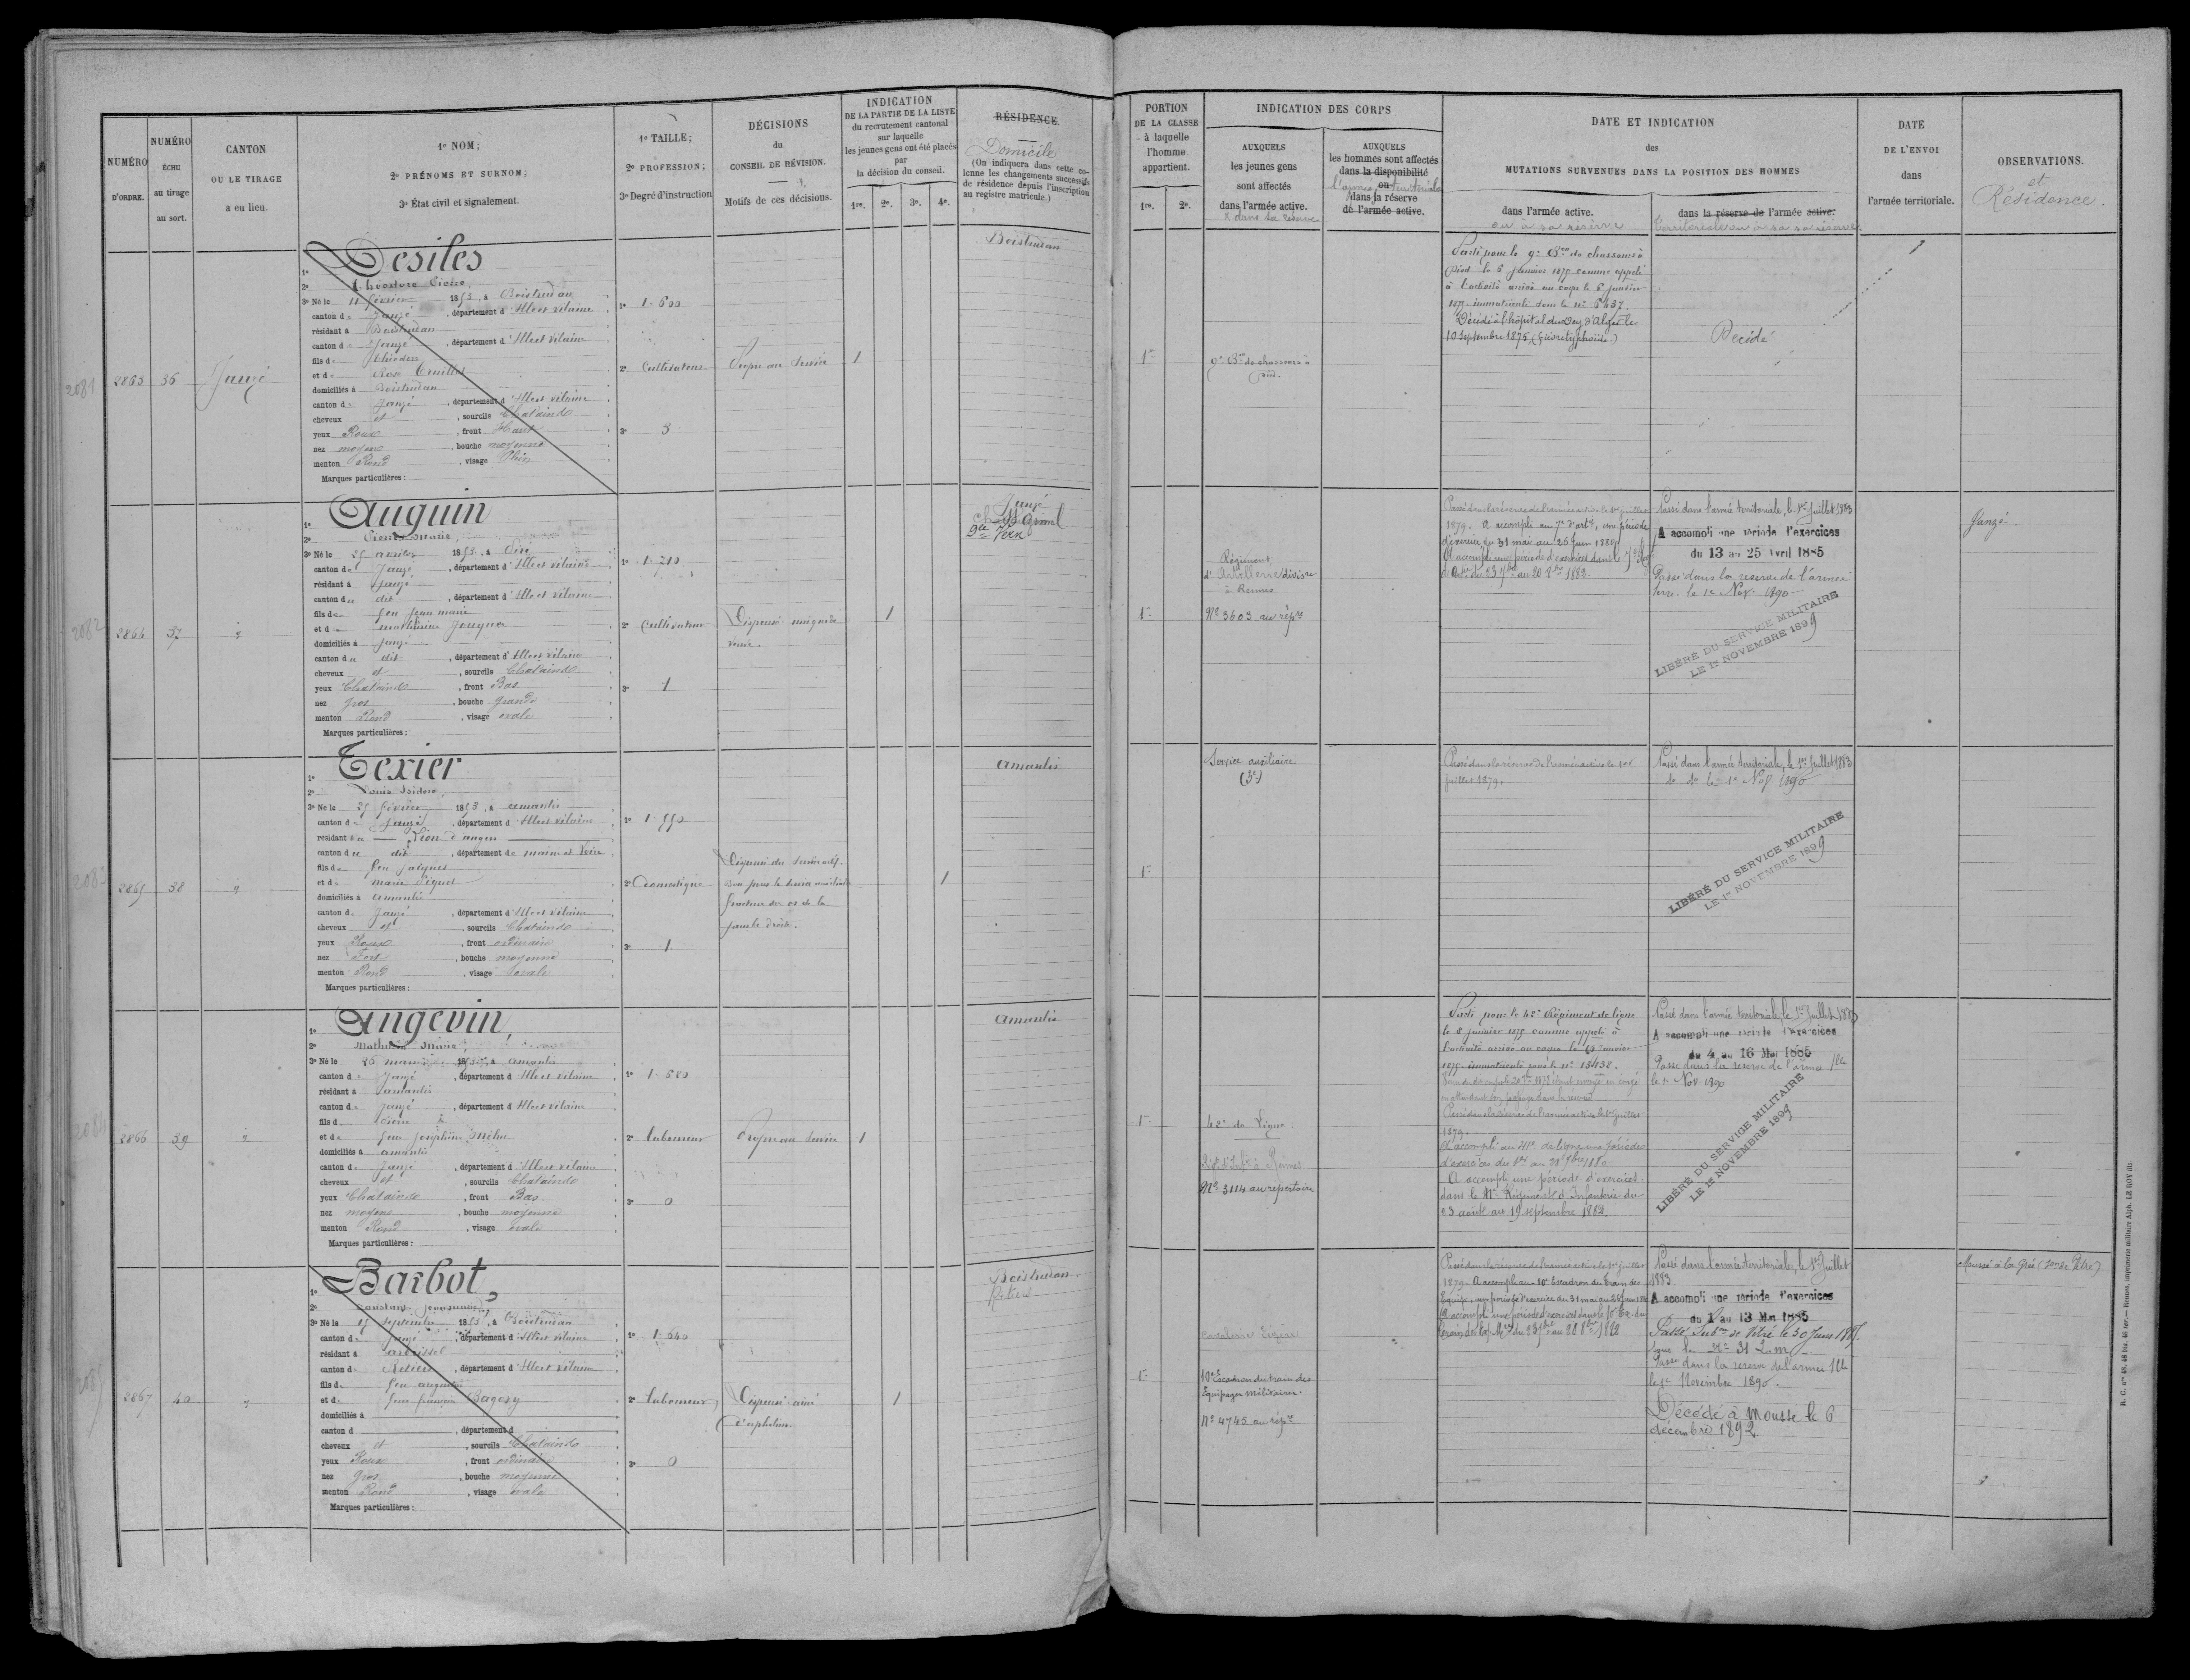 NUMÉRO
D'ORDRE.
NUMÉRO
ÉCHU
au tirage
au sort.
CANTON
OU LE TIRAGE
a eu lieu.
1º NOM;
2º PRÉNOMS ET SURNOM;
3º État civil et signalement.
1º TAILLE;
2º PROFESSION;
3º Degré d'instruction
DÉCISIONS
du
CONSEIL DE RÉVISION.
Motifs de ces décisions.
INDICATION
DE LA PARTIE DE LA LISTE
du recrutement cantonal
sur laquelle
les jeunes gens ont été placés
par
la décision du conseil.
1re. 2e. 3e. 4e.
RÉSIDENCE.
Domicile
(On indiquera dans cette co-
lonne les changements successifs
de résidence depuis l'inscription
au registre matricule.)
PORTION
DE LA CLASSE
à laquelle
l'homme
appartient.
1re. 2e.
INDICATION DES CORPS
AUXQUELS
les jeunes gens
sont affectés
dans l'armée active.
& dans sa réserve
AUXQUELS
les hommes sont affectés
dans la disponibilité
ou
l'armée territoriale
dans la réserve
de l'armée active.
DATE ET INDICATION
des
MUTATIONS SURVENUES DANS LA POSITION DES HOMMES
dans l'armée active.
ou à sa réserve
dans la réserve de l'armée active.
territoriale ou à sa réserve
DATE
DE L'ENVOI
dans
l'armée territoriale.
OBSERVATIONS.
et
Résidence.
2081
2863 36 Janzé
1º Desiles
2º Théodore Pierre,
3º Né le 11 février 1853, à Boistrudan
canton de Janzé, département d'Ille et Vilaine
résidant à Boistrudan
canton de Janzé, département d'Ille et Vilaine
fils de Théodore
et de Rose
domiciliés à Boistrudan
canton de Janzé, département d'Ille et Vilaine
cheveux et, sourcils Chatains
yeux Roux, front Haut
nez moyen, bouche moyenne
menton Rond, visage Plein
Marques particulières:
1º 1.600
2º Cultivateur
3º 3
Propre au Service
1
Boistrudan
1re
9e Bon de chasseurs à
pied.
Parti pour le 9e Bon de chasseurs à
pied le 6 janvier 1875 comme appelé
à l'activité arrivé au corps le 6 janvier
1875 immatriculé sous le nº 6437.
Décédé à l'hôpital du Dey d'Alger le
10 Septembre 1875, (fièvre typhoïde)
Décédé
2082
2864 37 "
1º Auguin
2º Pierre Marie,
3º Né le 25 1853, à Piré
canton de Janzé, département d'Ille et Vilaine
résidant à Janzé
canton du dit, département d'Ille et Vilaine
fils de feu Jean marie
et de mathurine
domiciliés à Janzé
canton du dit, département d'Ille et Vilaine
cheveux et, sourcils Chatains
yeux Chatains, front Bas
nez gros, bouche grande
menton Rond, visage ovale
Marques particulières:
1º 1.710
2º Cultivateur
3º 1
Dispensé
veuve.
1
Janzé
Vern
1re
Régiment
d'Artillerie divisre
à Rennes
Nº 3603 au répre
Passé dans la réserve de l'armée active le 1er juillet
1879. A accompli au 7e d'artie, une période
d'exercice du 31 mai au 26 juin 1880.
A accompli une période d'exercices dans le 7e
1882.
Passé dans l'armée territoriale, le 1er Juillet 1883
A accompli une période d'exercices
du 13 au 25 Avril 1885
Passé dans la réserve de l'armée
terre. le 1er Nov. 1890
LIBÉRÉ DU SERVICE MILITAIRE
LE 1er NOVEMBRE 1899
Janzé
2083
2865 38 "
1º Texier
2º Louis Isidore,
3º Né le 25 février 1853, à amanlis
canton de Janzé, département d'Ille et Vilaine
résidant au Lion d'angers
canton du dit, département de maine et Loire
fils de feu Jacques
et de marie
domiciliés à amanlis
canton de Janzé, département d'Ille et Vilaine
cheveux et, sourcils Chatains
yeux Roux, front ordinaire
nez Fort, bouche moyenne
menton Rond, visage ovale
Marques particulières:
1º 1.550
2º Domestique
3º 1
Dispensé du service actif
bon pour le service auxiliaire
fracture des os de la
jambe droite.
1
amanlis
1re
Service auxiliaire
(3e)
Passé dans la réserve de l'armée active le 1er
juillet 1879.
Passé dans l'armée territoriale, le 1er Juillet 1883
do do le 1er Nov. 1890
LIBÉRÉ DU SERVICE MILITAIRE
LE 1er NOVEMBRE 1899
2084
2866 39 "
1º Angevin,
2º Mathurin Marie,
3º Né le 26 mars 1853, à amanlis
canton de Janzé, département d'Ille et Vilaine
résidant à amanlis
canton de Janzé, département d'Ille et Vilaine
fils de Pierre
et de feue Joséphine
domiciliés à amanlis
canton de Janzé, département d'Ille et Vilaine
cheveux et, sourcils Chatains
yeux Chatains, front Bas
nez moyen, bouche moyenne
menton Rond, visage ovale
Marques particulières:
1º 1.580
2º laboureur
3º 0
Propre au Service
1
amanlis
1re
42e de Ligne
Régt d'Infie à Rennes
Nº 3114 au répertoire
Parti pour le 42e Régiment de ligne
le 8 janvier 1875 comme appelé à
l'activité arrivé au corps le janvier
1875 immatriculé sous le nº 15452.
en attendant son passage dans la réserve
Passé dans la réserve de l'armée active le 1er Juillet
1879.
A accompli au 41e de ligne une période
d'exercices du
A accompli une période d'exercices
dans le 41e Régiment d'Infanterie du
23 août au 19 septembre 1882.
Passé dans l'armée territoriale, le 1er Juillet 1883
A accompli une période d'exercices
du 4 au 16 Mai 1885
Passé dans la réserve de l'armée tle
le 1er Nov. 1890
LIBÉRÉ DU SERVICE MILITAIRE
LE 1er NOVEMBRE 1899
2085
2867 40 "
1º Barbot,
2º Constant
3º Né le 15 septembre 1853, à Boistrudan
canton de Janzé, département d'Ille et Vilaine
résidant à arbrissel
canton de Retiers, département d'Ille et Vilaine
fils de feu augustin
et de feue
domiciliés à
canton d, département d
cheveux et, sourcils Chatains
yeux Roux, front ordinaire
nez gros, bouche moyenne
menton Rond, visage ovale
Marques particulières:
1º 1.640
2º laboureur,
3º 0
Dispensé ainé
d'orphelins.
1
Boistrudan.
Retiers
1re
Cavalerie Légère
10e Escadron du train des
Equipages militaires.
Nº 4745 au répre
Passé dans la réserve de l'armée active le 1er juillet
1879. A accompli au 10e Escadron du train des
Equip., une période d'exercice du 31 mai au 26 juin 1880
A accompli une période d'exercices dans le 10e Esc. du
train des Eq. Mres du 1882
Passé dans l'armée territoriale, le 1er Juillet
1883
A accompli une période d'exercices
du 1 au 13 Mai 1885
Passé Subon de Vitré le 30 Juin 1885.
sous le Nº 31 L.m.
Passé dans la réserve de l'armée tle
le 1er Novembre 1890.
Décédé à Moussé le 6
décembre 1892.
Moussé à la Grée (Son de Vitré)
R. C. nos 48, 48 bis, 48 ter. — Rennes, imprimerie militaire Alph. LE ROY fils